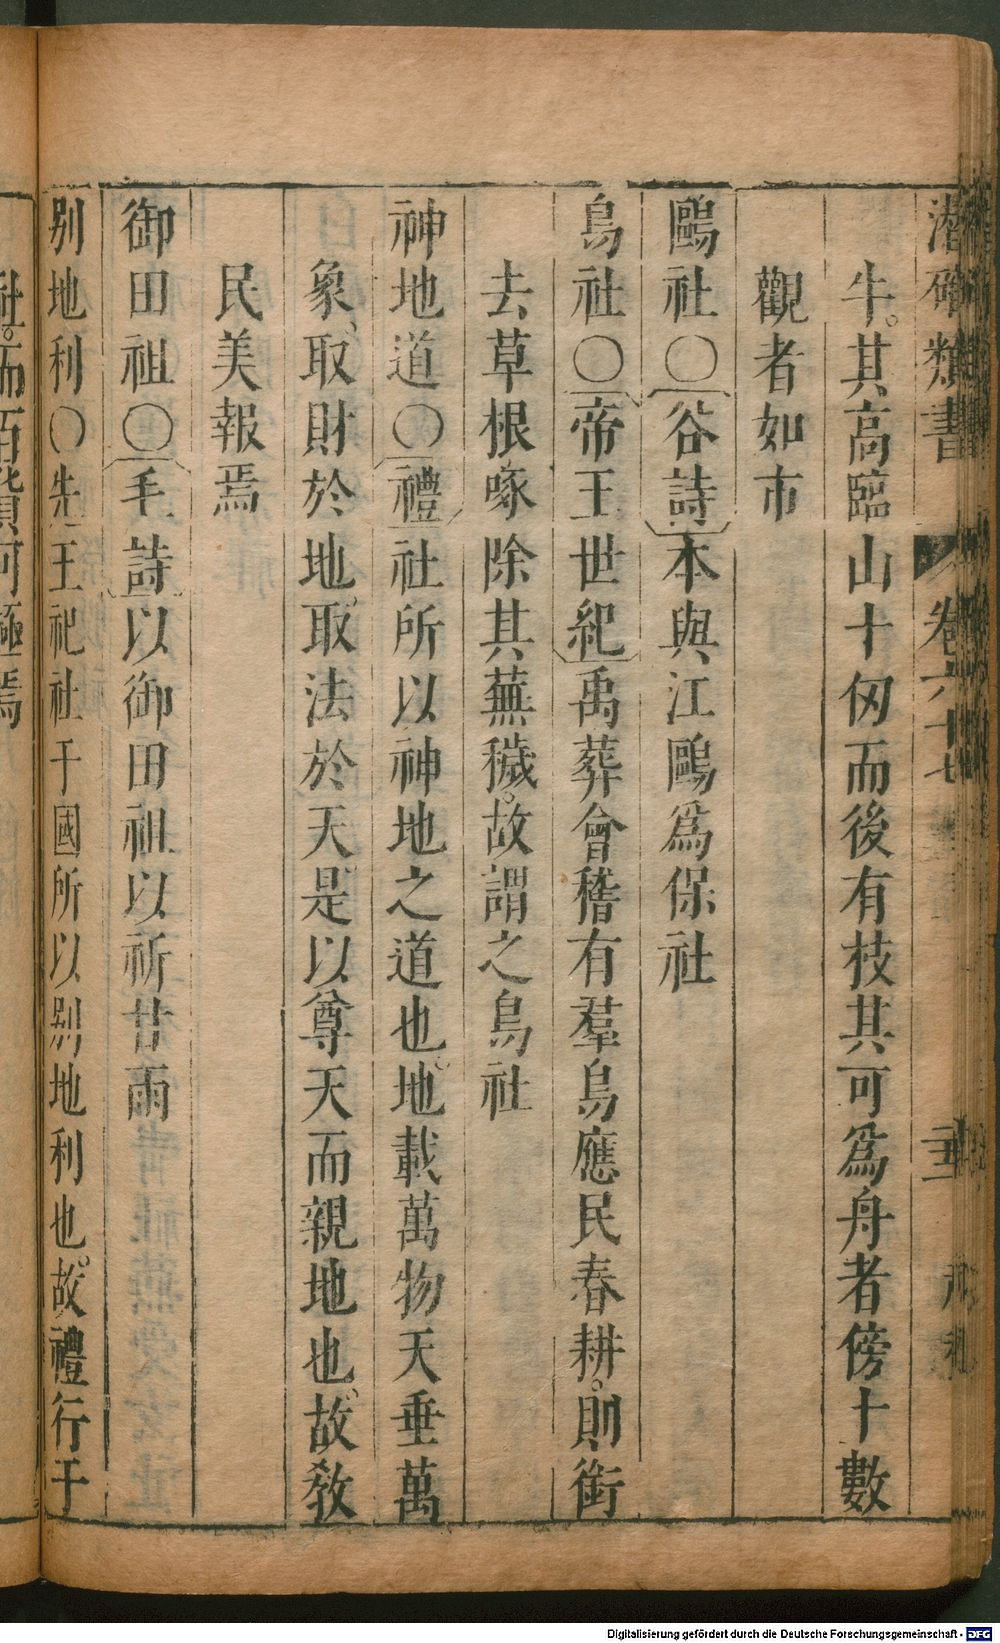 潛確類書 卷六十七
牛。其高臨山十仭而後有枝其可爲舟者傍十數
觀者如市
鷗社〇谷詩本與江鷗爲保社
鳥社〇帝王世紀禹葬會稽有羣鳥應民春耕。則銜
去草根啄除其蕪穢。故謂之鳥社
神地道〇禮社所以神地之道也。地載萬物天垂萬
象、取財於地。取法於天是以尊天而親地也。故教
民美報焉
御田祖〇毛詩以御田祖以祈甘雨
別地利〇先王祀社于國所以別地利也。故禮行于
社。而百貨可極焉
Digitalisierung gefördert durch die Deutsche Forschungsgemeinschaft - DFG